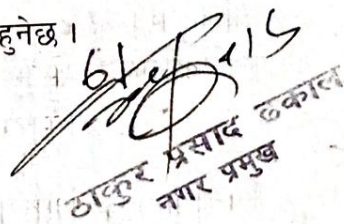 हुनेछ ।
ठाकुर प्रसाद ढकाल
नगर प्रमुख